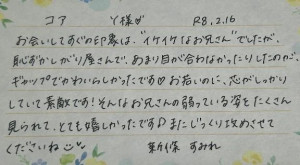 コア Y様♡ R8.2.16
お会いしてすぐの印象は、"イケイケなお兄さん"でしたが、
恥ずかしがり屋さんで、あまり目が合わなかったりしたのが、
ギャップでかわいらしかったです♡お若いのに、芯がしっかり
していて素敵です!そんなお兄さんの弱っている姿をたくさん
見られて、とても嬉しかったです♪またじっくり攻めさせて
くださいね
新保 すみれ